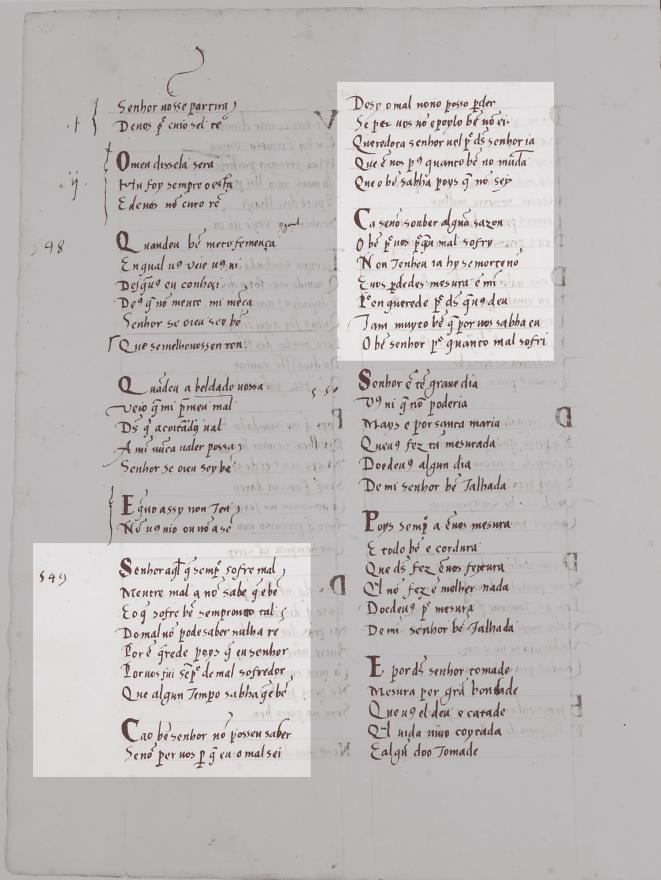 .i.
Senhor nosse partira
Deuos pᵉ cuio sel tē
ij.
O meu dissela sera
Hu foy sempre o esta
E deuos nō curo rē
548
Quandeu bē meto femença
En qual uꝰ veie uꝰ ui
Desq̄uꝰ eu conhoçi
Deꝰ q̄ nō mente, mi mēca
Senhor se oieu sey bē
Que semelhouossen ren
Quādeu a beldade uossa
veio q̄ mi p̄ meu mal
Dꝰ q̄ a coitādꝰ ual
A mi nūca ualer possa
Senhor se oieu sey bē
E q̄uo assy non Ten
Nō uꝰ uio ou nō a sē
549
Senhor aq̄l q̄ semp̄ sofre mal
Mentre mal a nō sabe q̄ e bē
E o q̄ sofre bē sempr outro tal
Do mal nō pode saber nulha rē
Por ē q̄rede poys q̄ eu senhor
Por uos fui sēp̄ᵉ de mal sofredor
Que algun Tempo sabha q̄ e bē
Ca o bē senhor nō posseu saber
Senō per uos p̄ q̄ eu o mal sei
Desy o mal nono posso p̄der
Se per uos nō e poylo bē nō ei
Queredora senhor uel p̄ dꝰ senhor ia
Que ē uos pꝰ quanto bē no mūda
Que o bē sabha poys q̄ nō sey
Ca senō souber algūa sazon
O bē p̄ uos p̄ q̄ eu mal sofry
Non Tenheu ia hy se morte nō
E uos p̄dedes mesura ē mi
Pᵉ en querede pᵉ dꝰ q̄ uꝰ deu
Tam muyto bē q̄ por uos sabha eu
O bē senhor pᵉ quanto mal sofri
Senhor ē tē graue dia
Vꝰ ui q̄ nō poderia
Mays e por santa maria
Que uꝰ fez tā mesurada
Doedeuꝰ algun dia
De mi senhor bē Talhada
Poys semp̄ a ē uos mesura
E todo bē e cordura
Que dꝰ fez ē uos feytura
Q̄l nō fez ē molher nada
Doedeuꝰ pᵉ mesura
De mi senhor bē Talhada
E por dꝰ senhor tomade
Mesura per grā bondade
Que uꝰ el deu e catade
Q̄l uida uiuo coytada
E algū doo Tomade